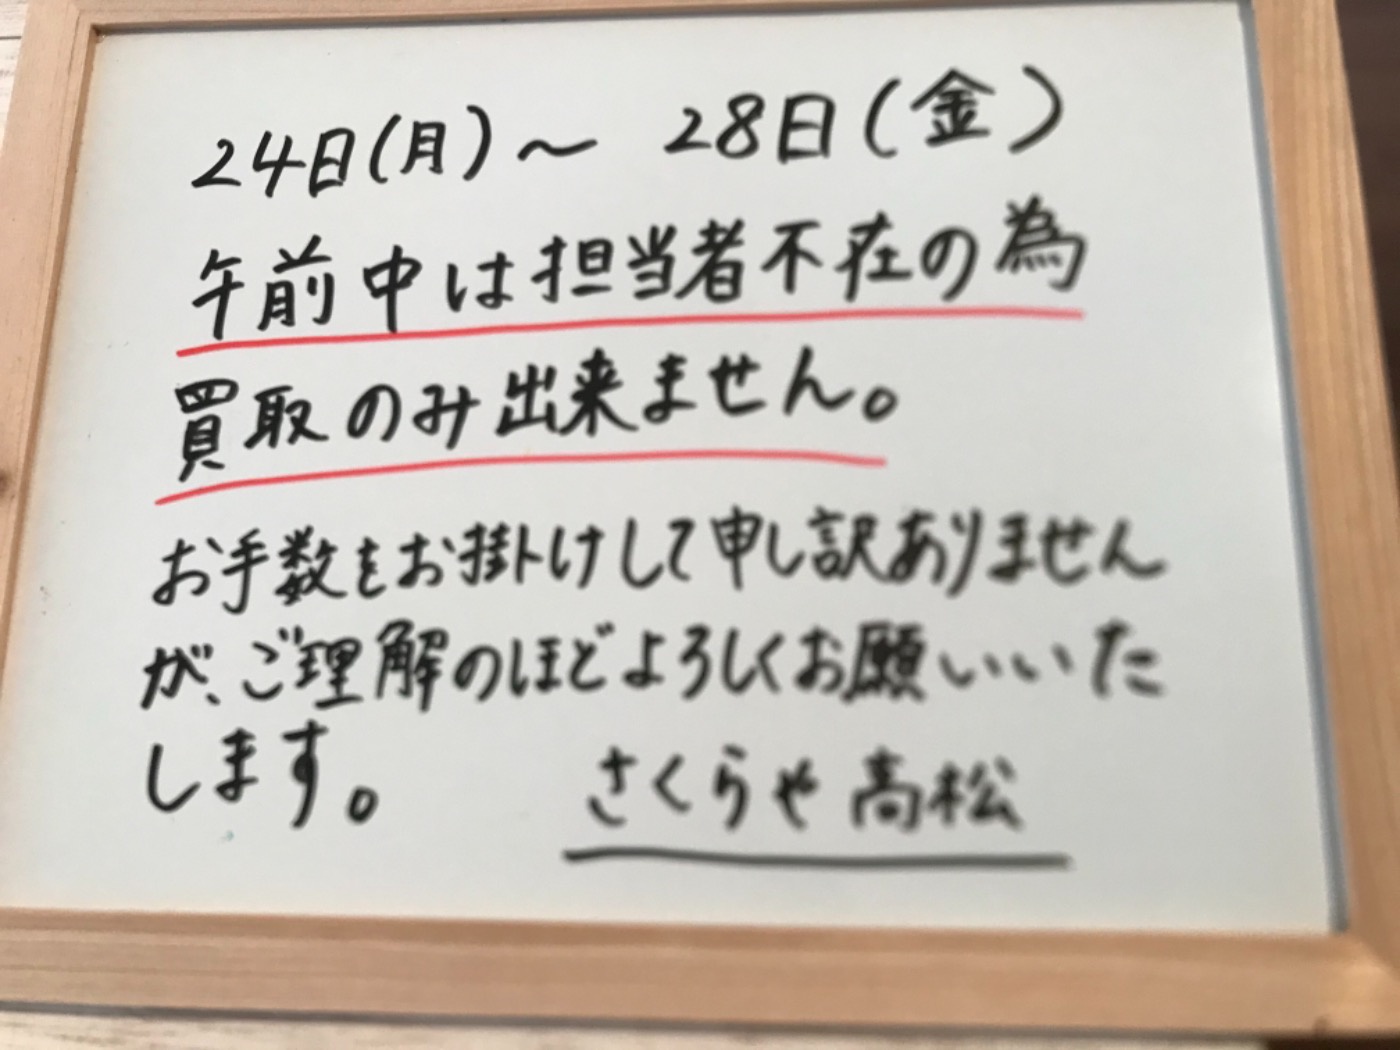 24日(月)～ 28日(金)
午前中は担当者不在の為
買取のみ出来ません。
お手数をお掛けして申し訳ありません
が、ご理解のほどよろしくお願いいた
します。
さくらや高松